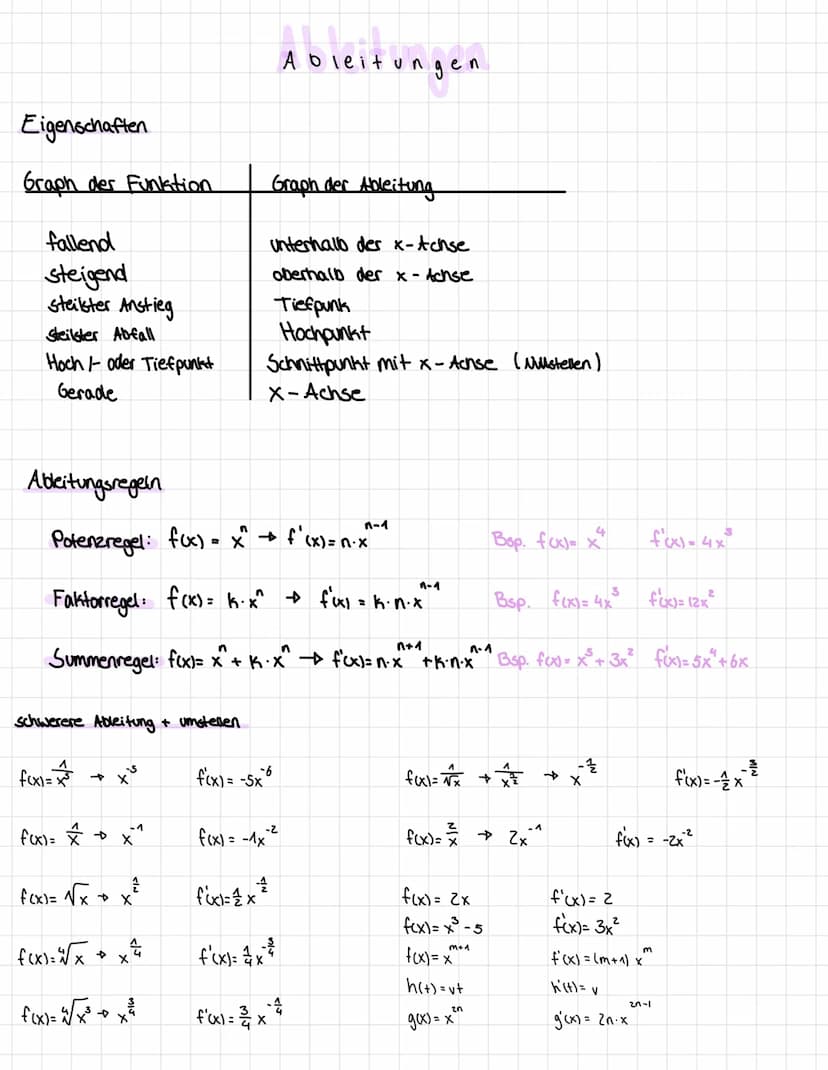 Ableitungen
Eigenschaften
Graph der Funktion Graph der Ableitung
fallend unterhalb der x-Achse
steigend oberhalb der x-Achse
steilster Anstieg Tiefpunk
steilster Abfall Hochpunkt
Hoch /- oder Tiefpunkt Schnittpunkt mit x-Achse (Nullstellen)
Gerade x-Achse
Ableitungsregeln
Potenzregel: f(x) = x^n → f'(x) = n·x^(n-1) Bsp. f(x) = x^4 f'(x) = 4x^3
Faktorregel: f(x) = k·x^n → f'(x) = k·n·x^(n-1) Bsp. f(x) = 4x^3 f'(x) = 12x^2
Summenregel: f(x) = x^n + k·x^n → f'(x) = n·x^(n+1) + k·n·x^(n-1) Bsp. f(x) = x^5 + 3x^2 f'(x) = 5x^4 + 6x
schwerere Ableitung + umstellen
f(x) = 1/x^5 → x^-5 f'(x) = -5x^-6 f(x) = 1/√x → 1/x^(1/2) → x^(-1/2) f'(x) = -1/2 x^(-3/2)
f(x) = 1/x → x^-1 f(x) = -1x^-2 f(x) = 2/x → 2x^-1 f'(x) = -2x^-2
f(x) = √x → x^(1/2) f'(x) = 1/2 x^(-1/2) f(x) = 2x f'(x) = 2
f(x) = x^3 - 5 f'(x) = 3x^2
f(x) = ∜x → x^(1/4) f'(x) = 1/4 x^(-3/4) f(x) = x^(m+1) f'(x) = (m+1) x^m
h(t) = vt h'(t) = v
f(x) = ∜x^3 → x^(3/4) f'(x) = 3/4 x^(-1/4) g(x) = x^(2n) g'(x) = 2n·x^(2n-1)